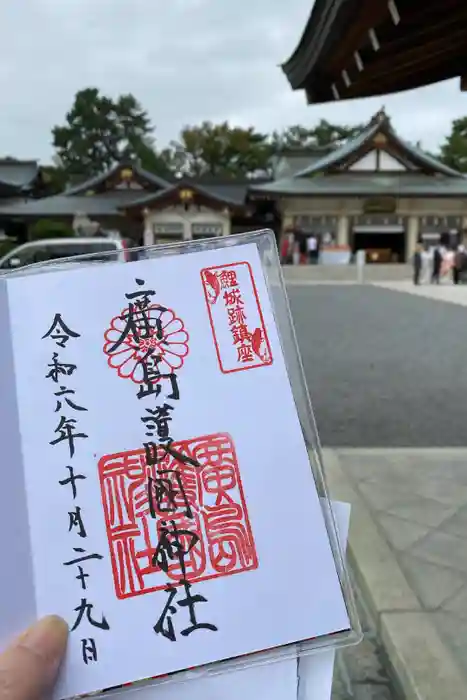 鯉城跡鎮座
廣島護國神社
廣島護國神社
令和六年十月二十九日